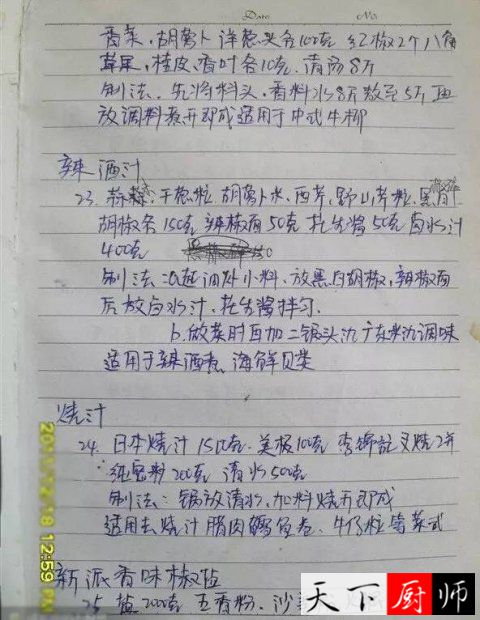 Date No.
香菜，胡萝卜 洋葱头各100克 红椒2个 八角
草果，桂皮，香叶各10克，清汤8斤
制法、先将料头，香料水8斤熬至5斤再
放调料煮开即成适用于中式牛柳
辣酒汁
23. 蒜 干葱粒 胡萝卜米、西芹，野山芹粒，黑白
胡椒各150克 辣椒面50克 花生酱50克 卤水汁
400克
制法：a起油炒小料，放黑白胡椒，辣椒面
后放卤水汁，花生酱拌匀.
b.做菜时再加二锅头 广东米 调味
适用于辣酒煮 海鲜贝类
烧汁
24. 日本烧汁1500克 美极100克 李锦记叉烧
200克 清水500克
制法：锅放清水，加料烧开即成
适用于烧汁腊肉 鱼卷、牛仔粒等菜式
新派香味椒盐
25 盐2000克 五香粉、沙
2011/12/18 12:59 PM
天下厨师